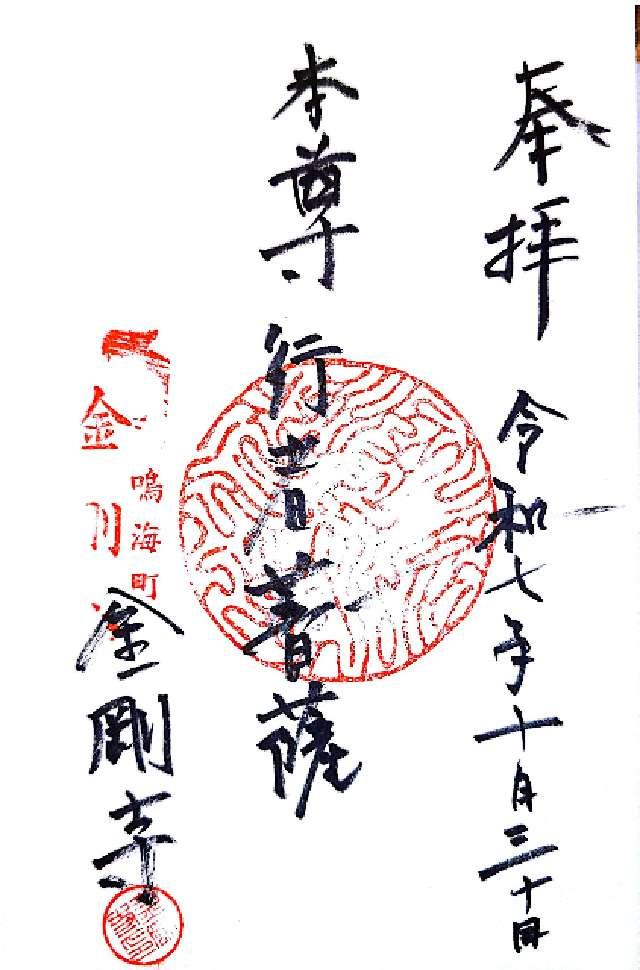 奉拝 令和七年十月三十日
本尊 行者菩薩
鳴海町
金剛寺